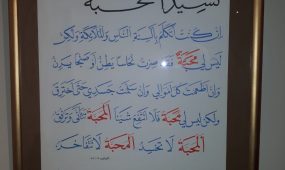 نشيد المحبة
إن كنت أتكلم بألسنة الناس والملائكة ولكن
ليس لي محبة فقد صرت نحاسا يطن أو صنجا يرن
وإن أطعمت كل أموالي وإن سلمت جسدي حتى احترق
ولكن ليس لي محبة فلا أنتفع شيئا المحبة تتأنى وترفق
المحبة لا تحسد المحبة لا تتفاخر